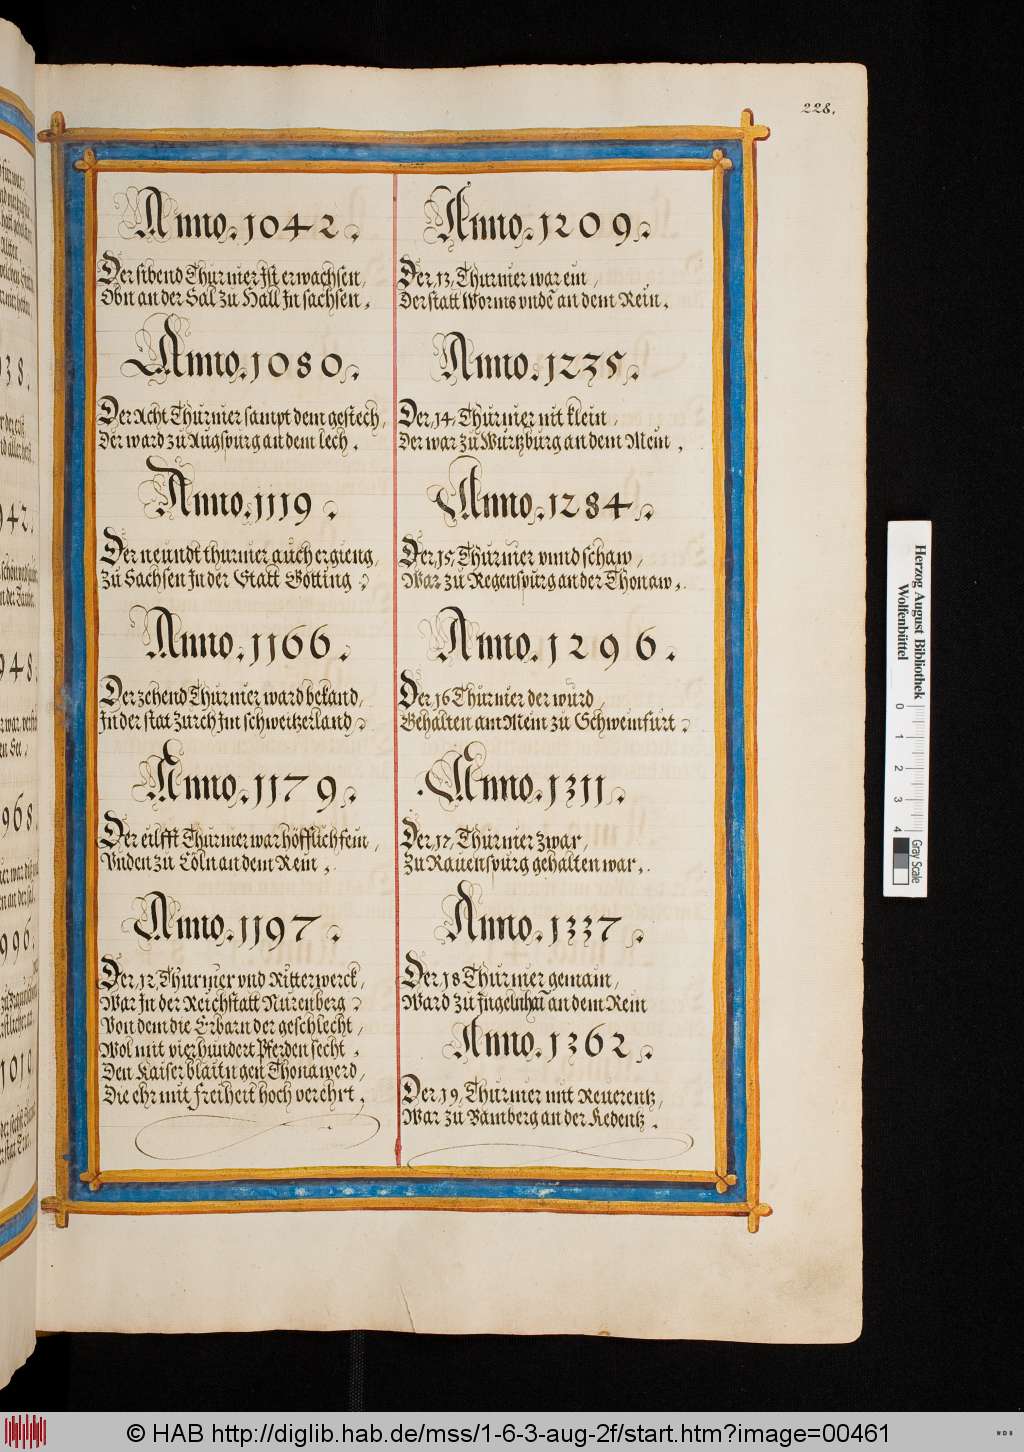 228.
Anno. 1042.
Der sibend Thurnier Ist erwachsen,
Obn an der Sal zu Hall In sachsen,
Anno. 1080.
Der Acht Thurnier sampt dem gestech,
Der ward zu Augspurg an dem lech,
Anno. 1119.
Der neundt thurnier auch ergieng,
Zu Sachsen In der Statt Götting,
Anno. 1166.
Der zehend Thurnier ward bekand,
In der stat Zürch Im schweitzerland,
Anno. 1179.
Der eilfft Thurnier war höfflich fein,
Unden zu Cöln an dem Rein,
Anno. 1197.
Der, 12, Thurnier vnd Ritterwerck,
War In der Reichstatt Nurenberg,
Von dem die Erbarn der geschlecht,
Wol mit vierhundert Pferden secht,
Den Kaiser blaitn gen Thonawerd,
Die ehr mit freiheit hoch verehrt,
Anno. 1209.
Der, 13, Thurnier war ein,
Der statt Worms vnde an dem Rein,
Anno. 1235.
Der, 14, Thurnier nit klein,
Der war zu Würtzburg an dem Mein,
Anno. 1284.
Der, 15, Thurnier vnnd schaw,
War zu Regenspurg an der Thonaw,
Anno. 1296.
Der, 16 Thurnier der würd,
Gehalten am Mein zu Schweinfurt,
Anno. 1311.
Der, 17, Thurnier zwar,
Zu Rauenspurg gehalten war,
Anno. 1337.
Der, 18 Thurnier gemain,
Ward zu Ingelnhai an dem Rein
Anno. 1362.
Der, 19, Thurnier mit Reuerentz,
War zu Bamberg an der Redentz,
Herzog August Bibliothek
Wolfenbüttel
0 1 2 3 4
Gray Scale
© HAB http://diglib.hab.de/mss/1-6-3-aug-2f/start.htm?image=00461